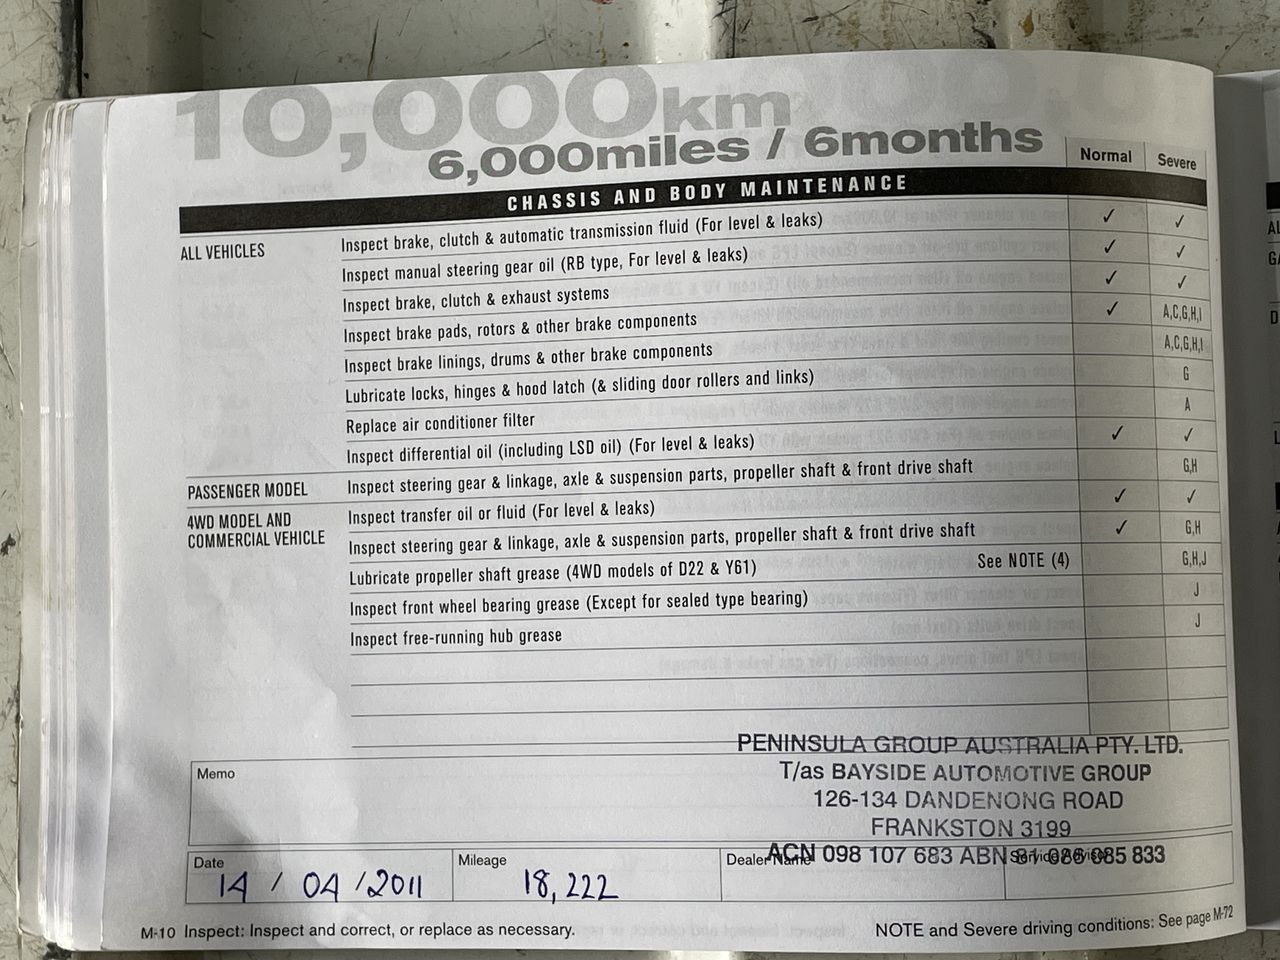 10,000km
6,000miles / 6months
Normal Severe
CHASSIS AND BODY MAINTENANCE
ALL VEHICLES
Inspect brake, clutch & automatic transmission fluid (For level & leaks) ✓ ✓
Inspect manual steering gear oil (RB type, For level & leaks) ✓ ✓
Inspect brake, clutch & exhaust systems ✓ ✓
Inspect brake pads, rotors & other brake components ✓ A,C,G,H,I
Inspect brake linings, drums & other brake components A,C,G,H,I
Lubricate locks, hinges & hood latch (& sliding door rollers and links) G
Replace air conditioner filter A
Inspect differential oil (including LSD oil) (For level & leaks) ✓ ✓
PASSENGER MODEL Inspect steering gear & linkage, axle & suspension parts, propeller shaft & front drive shaft G,H
4WD MODEL AND
COMMERCIAL VEHICLE
Inspect transfer oil or fluid (For level & leaks) ✓ ✓
Inspect steering gear & linkage, axle & suspension parts, propeller shaft & front drive shaft ✓ G,H
Lubricate propeller shaft grease (4WD models of D22 & Y61) See NOTE (4) G,H,J
Inspect front wheel bearing grease (Except for sealed type bearing) J
Inspect free-running hub grease J
PENINSULA GROUP AUSTRALIA PTY. LTD.
T/as BAYSIDE AUTOMOTIVE GROUP
126-134 DANDENONG ROAD
FRANKSTON 3199
ACN 098 107 683 ABN 81 086 085 833
Memo
Date Mileage Dealer Name Service Advisor
14 / 04 / 2011 18,222
M-10 Inspect: Inspect and correct, or replace as necessary. NOTE and Severe driving conditions: See page M-72